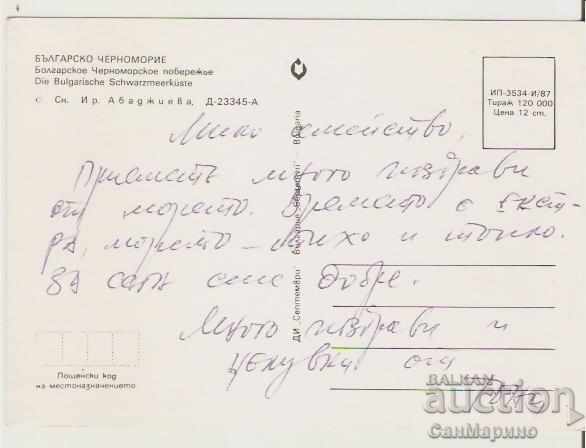 БЪЛГАРСКО ЧЕРНОМОРИЕ
Болгарское Черноморское побережье
Die Bulgarische Schwarzmeerküste
Сн. Ир. Абаджиева, Д-23345-А
ИП-3534-И/87
Тираж 120 000
Цена 12 ст.
Мило семейство,
Приемете много поздрави
от морето. Времето е екст-
ра, морето – тихо и топло.
За сега сме добре.
Много поздрави и
целувки от
ДИ „Септември" България Bulgaria
Пощенски код
на местоназначението
BALKAN
auction
СанМарино